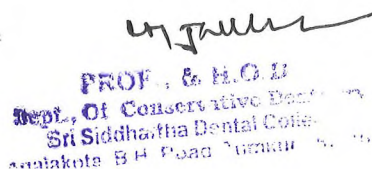 PROF., & H.O.D
Dept., Of Conservative
Sri Siddhartha Dental
Agalakota B H Road Tumkur